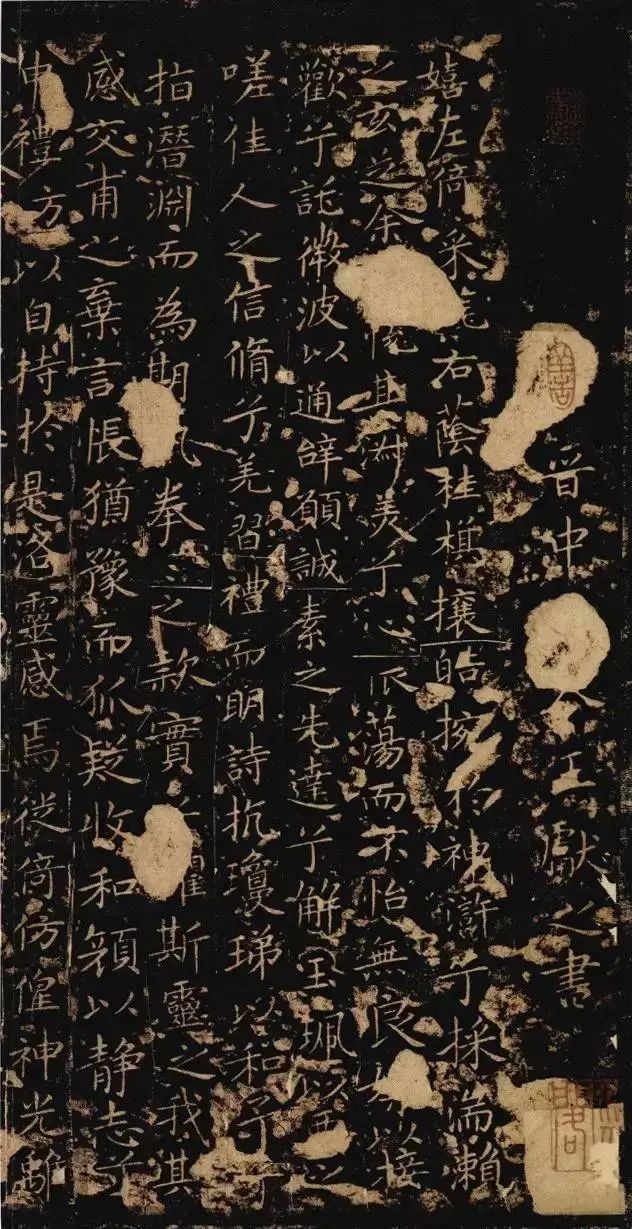 晉中令王獻之書
嬉左倚采旄右蔭桂旗攘皓捥於神滸兮採湍瀨
之玄芝余悅其淑美兮心振蕩而不怡無良媒以接
歡兮託微波以通辭願誠素之先達兮解玉珮以要之
嗟佳人之信脩兮羌習禮而明詩抗瓊珶以和予兮
指潛淵而為期執拳〻之款實兮懼斯靈之我欺
感交甫之棄言悵猶豫而狐疑收和顏以静志兮
申禮防以自持於是洛靈感焉徙倚仿偟神光離